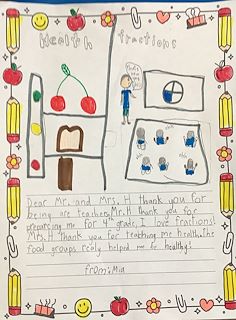 Health fractions
Dear Mr. and Mrs. H thank you for
being are teacher. Mr. H thank you for
preparcing me for 4th grade, I love frations!
Mrs. H thank you for teaching me health. The
food groups realy helped me be healthy!
from: Mia